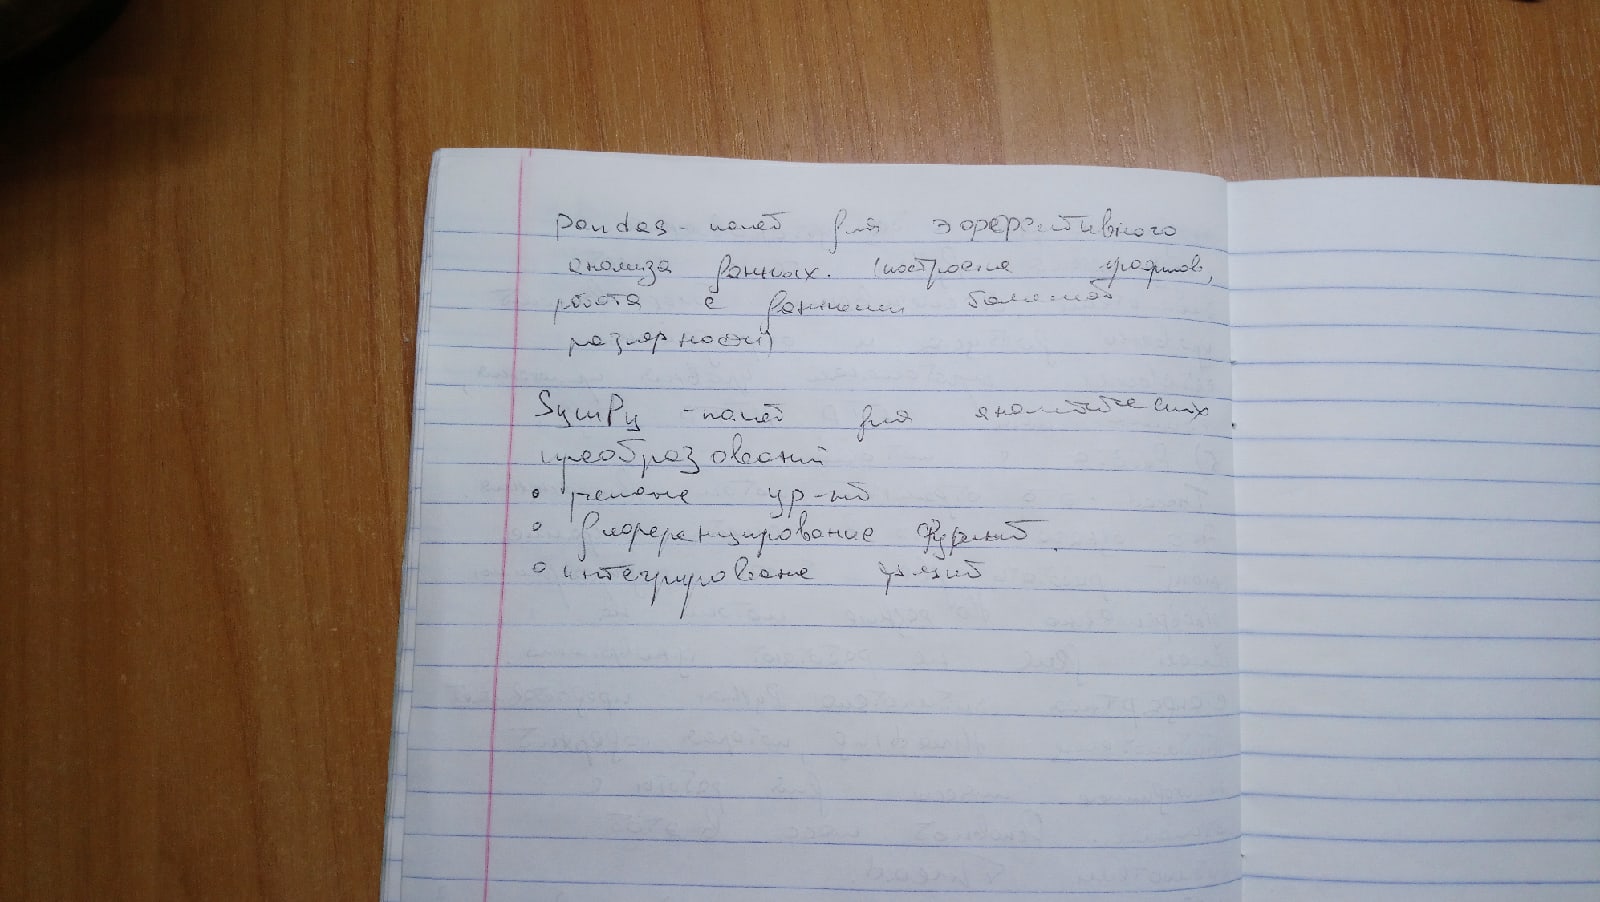 pandas - пакет для эффективного
анализа данных. (построение графиков,
работа с данными большой
размерности)
SymPy - пакет для аналитических
преобразований
• решение ур-ий
• дифференцирование функций
• интегрирование функций